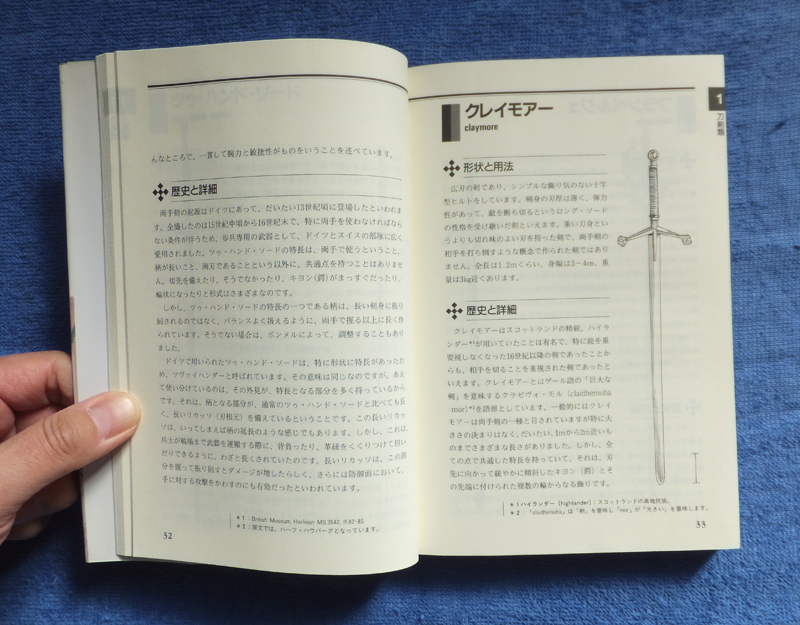 んなところで、一貫して腕力と敏捷性がものをいうことを述べています。
歴史と詳細
両手剣の起源はドイツにあって、だいたい13世紀頃に登場したといわれま
す。全盛したのは15世紀中頃から16世紀末で、特に両手を使わなければなら
ない条件が伴うため、歩兵専用の武器として、ドイツとスイスの部隊に広く
愛用されました。ツゥ・ハンド・ソードの特長は、両手で使うということ、
柄が長いこと、両刃であることという以外に、共通点を持つことはありませ
ん。切先を備えたり、そうでなかったり、キヨン(鍔)がまっすぐだったり、
輪状になったりと形式はさまざまなのです。
しかし、ツゥ・ハンド・ソードの特長の一つである柄は、長い剣身に振り
回されるのではなく、バランスよく扱えるように、両手で握る以上に長く作
られています。そうでない場合は、ポンメルによって、調整することもあり
ました。
ドイツで用いられたツゥ・ハンド・ソードは、特に形状に特長があったた
め、ツヴァイハンダーと呼ばれています。その意味は同じなのですが、あえ
て使い分けているのは、その外見が、特長となる部分を多く持っているから
です。それは、柄となる部分が、通常のツゥ・ハンド・ソードと比べても長
く、長いリカッソ(刃根元)を備えているということです。この長いリカッ
ソは、いってしまえば柄の延長のような感じでもあります。しかし、これは、
兵士が戦場まで武器を運搬する際に、背負ったり、革紐をくくりつけて担い
だりできるように、わざと長くされていたのです。長いリカッソは、この部
分を握って振り回すとダメージが増したらしく、さらには防御面において、
手に対する攻撃をかわすのにも有効だったといわれています。
*1：British Museum, Harleian MS.3542, ff.82-85.
*2：原文では、ハーフ・ハウバーグとなっています。
32
クレイモアー
claymore
形状と用法
広刃の剣であり、シンプルな飾り気のない十字
型ヒルトをしています。剣身の刃厚は薄く、弾力
性があって、敵を断ち切るというロング・ソード
の性格を受け継いだ剣といえます。重い刀身とい
うよりも切れ味のよい刃を持った剣で、両手剣の
相手を打ち倒すような概念で作られた剣ではあり
ません。全長は1.2mくらい、身幅は3～4cm、重
量は3kg近くあります。
歴史と詳細
クレイモアーはスコットランドの精鋭、ハイラ
ンダー*1が用いていたことは有名で、特に鎧を重
要視しなくなった16世紀以降の剣であったことか
らも、相手を切ることを重視された剣であったと
いえます。クレイモアーとはゲール語の「巨大な
剣」を意味するクラゼヴォ・モル(claidhemoha
mor)*2を語源としています。一般的にはクレイ
モアーは両手剣の一種と目されていますが特に大
きさの決まりはなく、だいたい、1mから2m近いも
のまでさまざまな長さがありました。しかし、全
ての点で共通した特長を持っていて、それは、刃
先に向かって緩やかに傾斜したキヨン(鍔)とそ
の先端に付けられた複数の輪からなる飾りです。
*1ハイランダー(highlander)：スコットランドの高地民族。
*2：「claidhemoha」は「剣」を意味し「mor」が「大きい」を意味します。
33
1
刀剣類